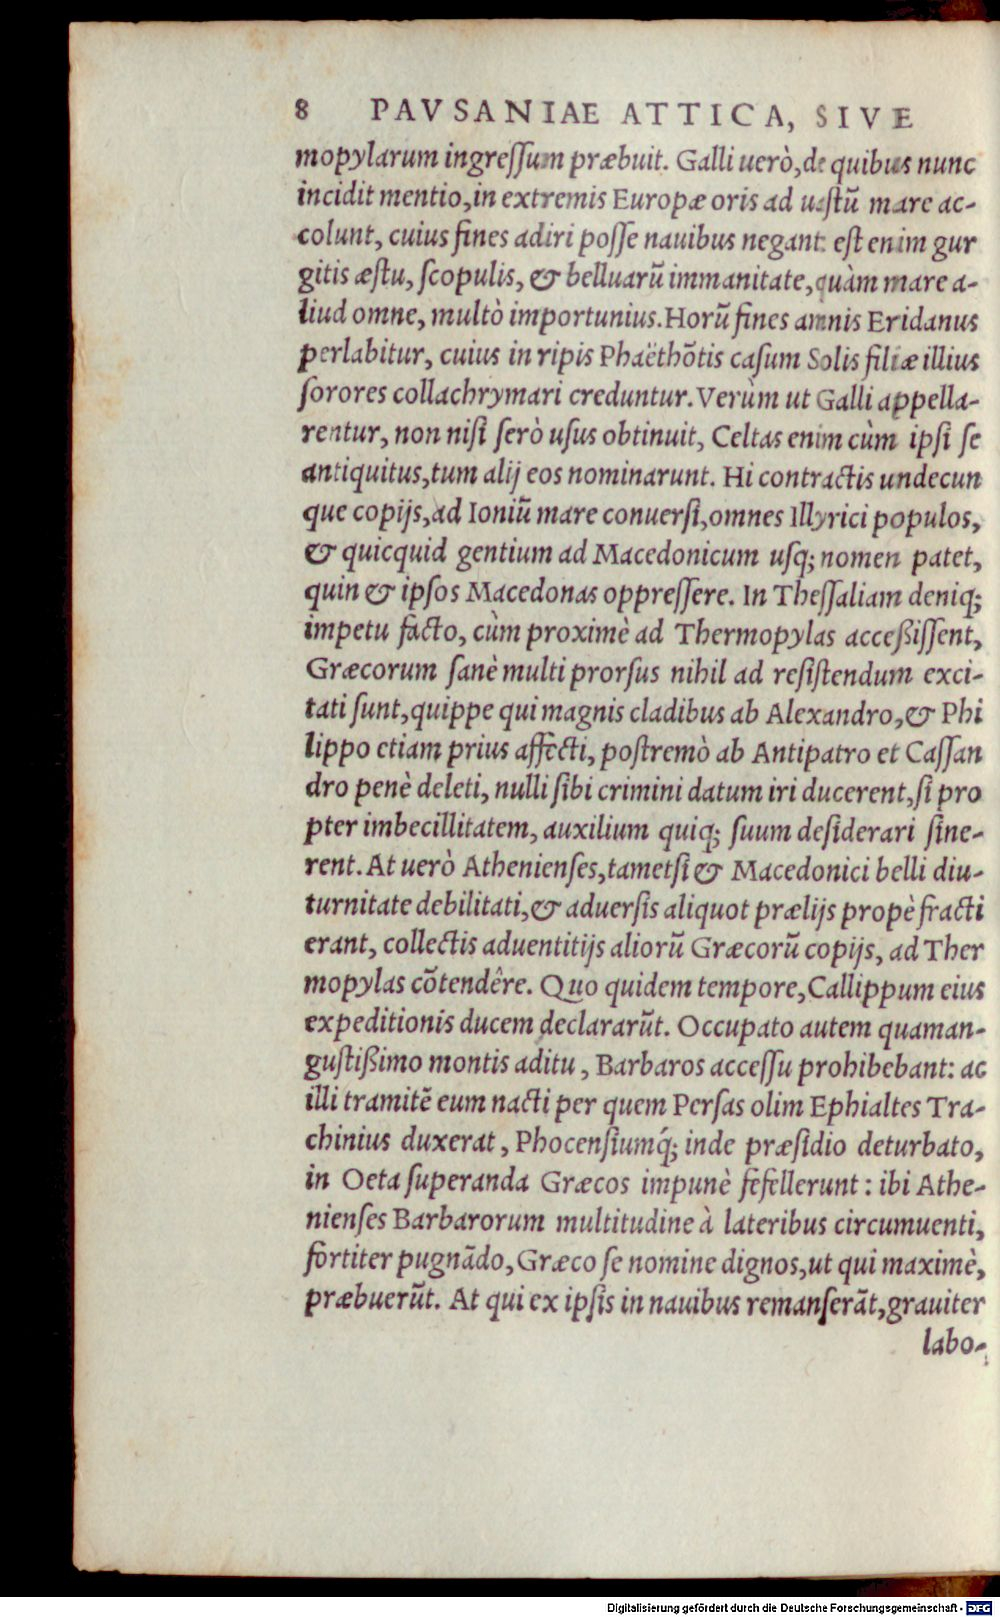 8 PAVSANIAE ATTICA, SIVE
mopylarum ingressum præbuit. Galli uerò, de quibus nunc
incidit mentio, in extremis Europæ oris ad uastū mare ac-
colunt, cuius fines adiri posse nauibus negant: est enim gur
gitis æstu, scopulis, & belluarū immanitate, quàm mare a-
liud omne, multò importunius. Horū fines amnis Eridanus
perlabitur, cuius in ripis Phaëthōtis casum Solis filiæ illius
sorores collachrymari creduntur. Verùm ut Galli appella-
rentur, non nisi serò usus obtinuit, Celtas enim cùm ipsi se
antiquitus, tum alij eos nominarunt. Hi contractis undecun
que copijs, ad Ioniū mare conuersi, omnes Illyrici populos,
& quicquid gentium ad Macedonicum usq; nomen patet,
quin & ipsos Macedonas oppressere. In Thessaliam deniq;
impetu facto, cùm proximè ad Thermopylas acceßissent,
Græcorum sanè multi prorsus nihil ad resistendum exci-
tati sunt, quippe qui magnis cladibus ab Alexandro, & Phi
lippo etiam prius affecti, postremò ab Antipatro et Cassan
dro penè deleti, nulli sibi crimini datum iri ducerent, si pro
pter imbecillitatem, auxilium quiq; suum desiderari sine-
rent. At uerò Athenienses, tametsi & Macedonici belli diu-
turnitate debilitati, & aduersis aliquot prælijs propè fracti
erant, collectis aduentitijs aliorū Græcorū copijs, ad Ther
mopylas cōtendêre. Quo quidem tempore, Callippum eius
expeditionis ducem declararūt. Occupato autem quaman-
gustißimo montis aditu, Barbaros accessu prohibebant: ac
illi tramitē eum nacti per quem Persas olim Ephialtes Tra-
chinius duxerat, Phocensiumq́; inde præsidio deturbato,
in Oeta superanda Græcos impunè fefellerunt: ibi Athe-
nienses Barbarorum multitudine à lateribus circumuenti,
fortiter pugnādo, Græco se nomine dignos, ut qui maximè,
præbuerūt. At qui ex ipsis in nauibus remanserāt, grauiter
labo-
Digitalisierung gefördert durch die Deutsche Forschungsgemeinschaft - DFG